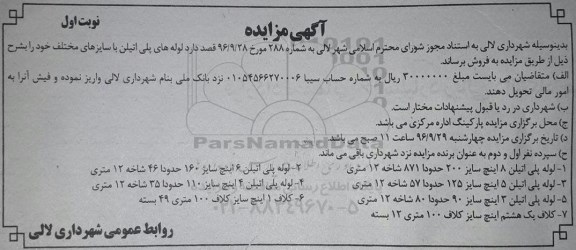 آگهی مزایده
نوبت اول
بدینوسیله شهرداری لالی به استناد مجوز شورای محترم اسلامی شهر لالی به شماره ۲۸۸ مورخ ۹۶/۹/۲۸ قصد دارد لوله های پلی اتیلن با سایزهای مختلف خود را بشرح
ذیل از طریق مزایده به فروش برساند.
الف) متقاضیان می بایست مبلغ ۳۰۰۰۰۰۰۰ ریال به شماره حساب سیبا ۰۱۰۵۴۵۶۶۲۷۰۰۰۶ نزد بانک ملی بنام شهرداری لالی واریز نموده و فیش آنرا به
امور مالی تحویل دهند.
ب) شهرداری در رد یا قبول پیشنهادات مختار است.
ج) محل برگزاری مزایده پارکینگ اداره مرکزی می باشد.
د) تاریخ برگزاری مزایده چهارشنبه ۹۶/۹/۲۹ ساعت ۱۱ صبح می باشد.
ح) سپرده نفر اول و دوم به عنوان برنده مزایده نزد شهرداری باقی می ماند
۱- لوله پلی اتیلن ۸ اینچ سایز ۲۰۰ حدودا ۸۷۱ شاخه ۱۲ متری
۲- لوله پلی اتیلن ۶ اینچ سایز ۱۶۰ حدودا ۴۶ شاخه ۱۲ متری
۳- لوله پلی اتیلن ۵ اینچ سایز ۱۲۵ حدودا ۵۷ شاخه ۱۲ متری
۴- لوله پلی اتیلن ۴ اینچ سایز ۱۱۰ حدودا ۳۵ شاخه ۱۲ متری
۵- لوله پلی اتیلن ۳ اینچ سایز ۹۰ حدودا ۸۰ شاخه ۱۲ متری
۶- کلاف ۱ اینچ سایز کلاف ۱۰۰ متری ۴۹ بسته
۷- کلاف یک هشتم اینچ سایز کلاف ۱۰۰ متری ۱۲ بسته
روابط عمومی شهرداری لالی
ParsNamadData
۰۲۱-۸۸۳۴۹۶۷۰-۵